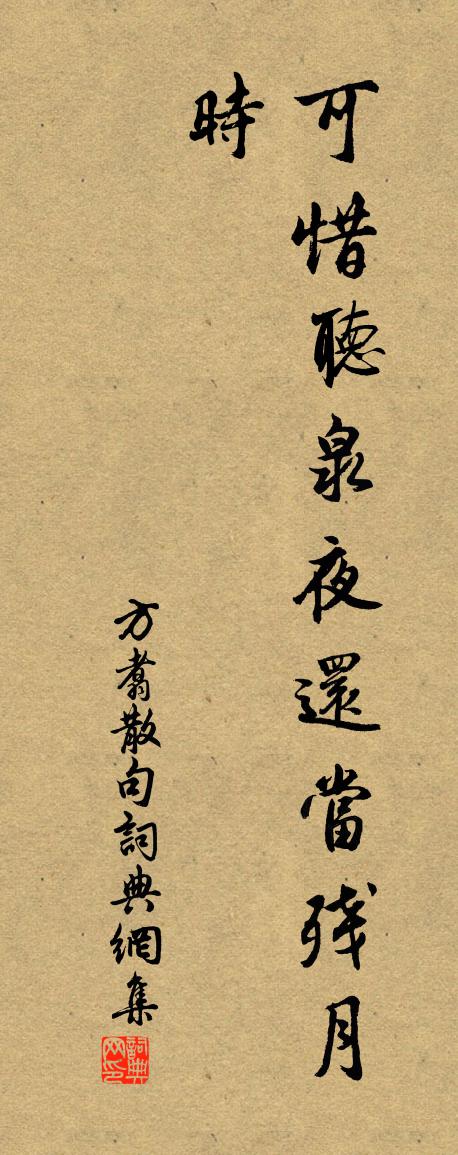 可惜聽泉夜還當殘月
時
方翥散句詞典網集
詞典网印